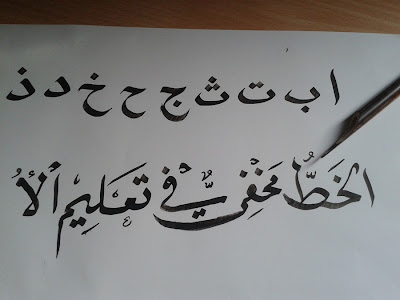 ا ب ت ث ج ح خ د ذ
الخَطُّ مَخْفِيٌّ فِيْ تَعْلِيْمِ اْلأُ